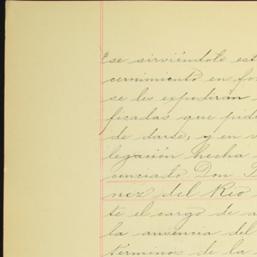 ese sirviéndole est
cernimiento en fo
se les expedirán
ficadas que pid
de darse, y en v
legación hecha
cenciado Don
nez del Rio
te el cargo de a
la ausencia del
términos de la